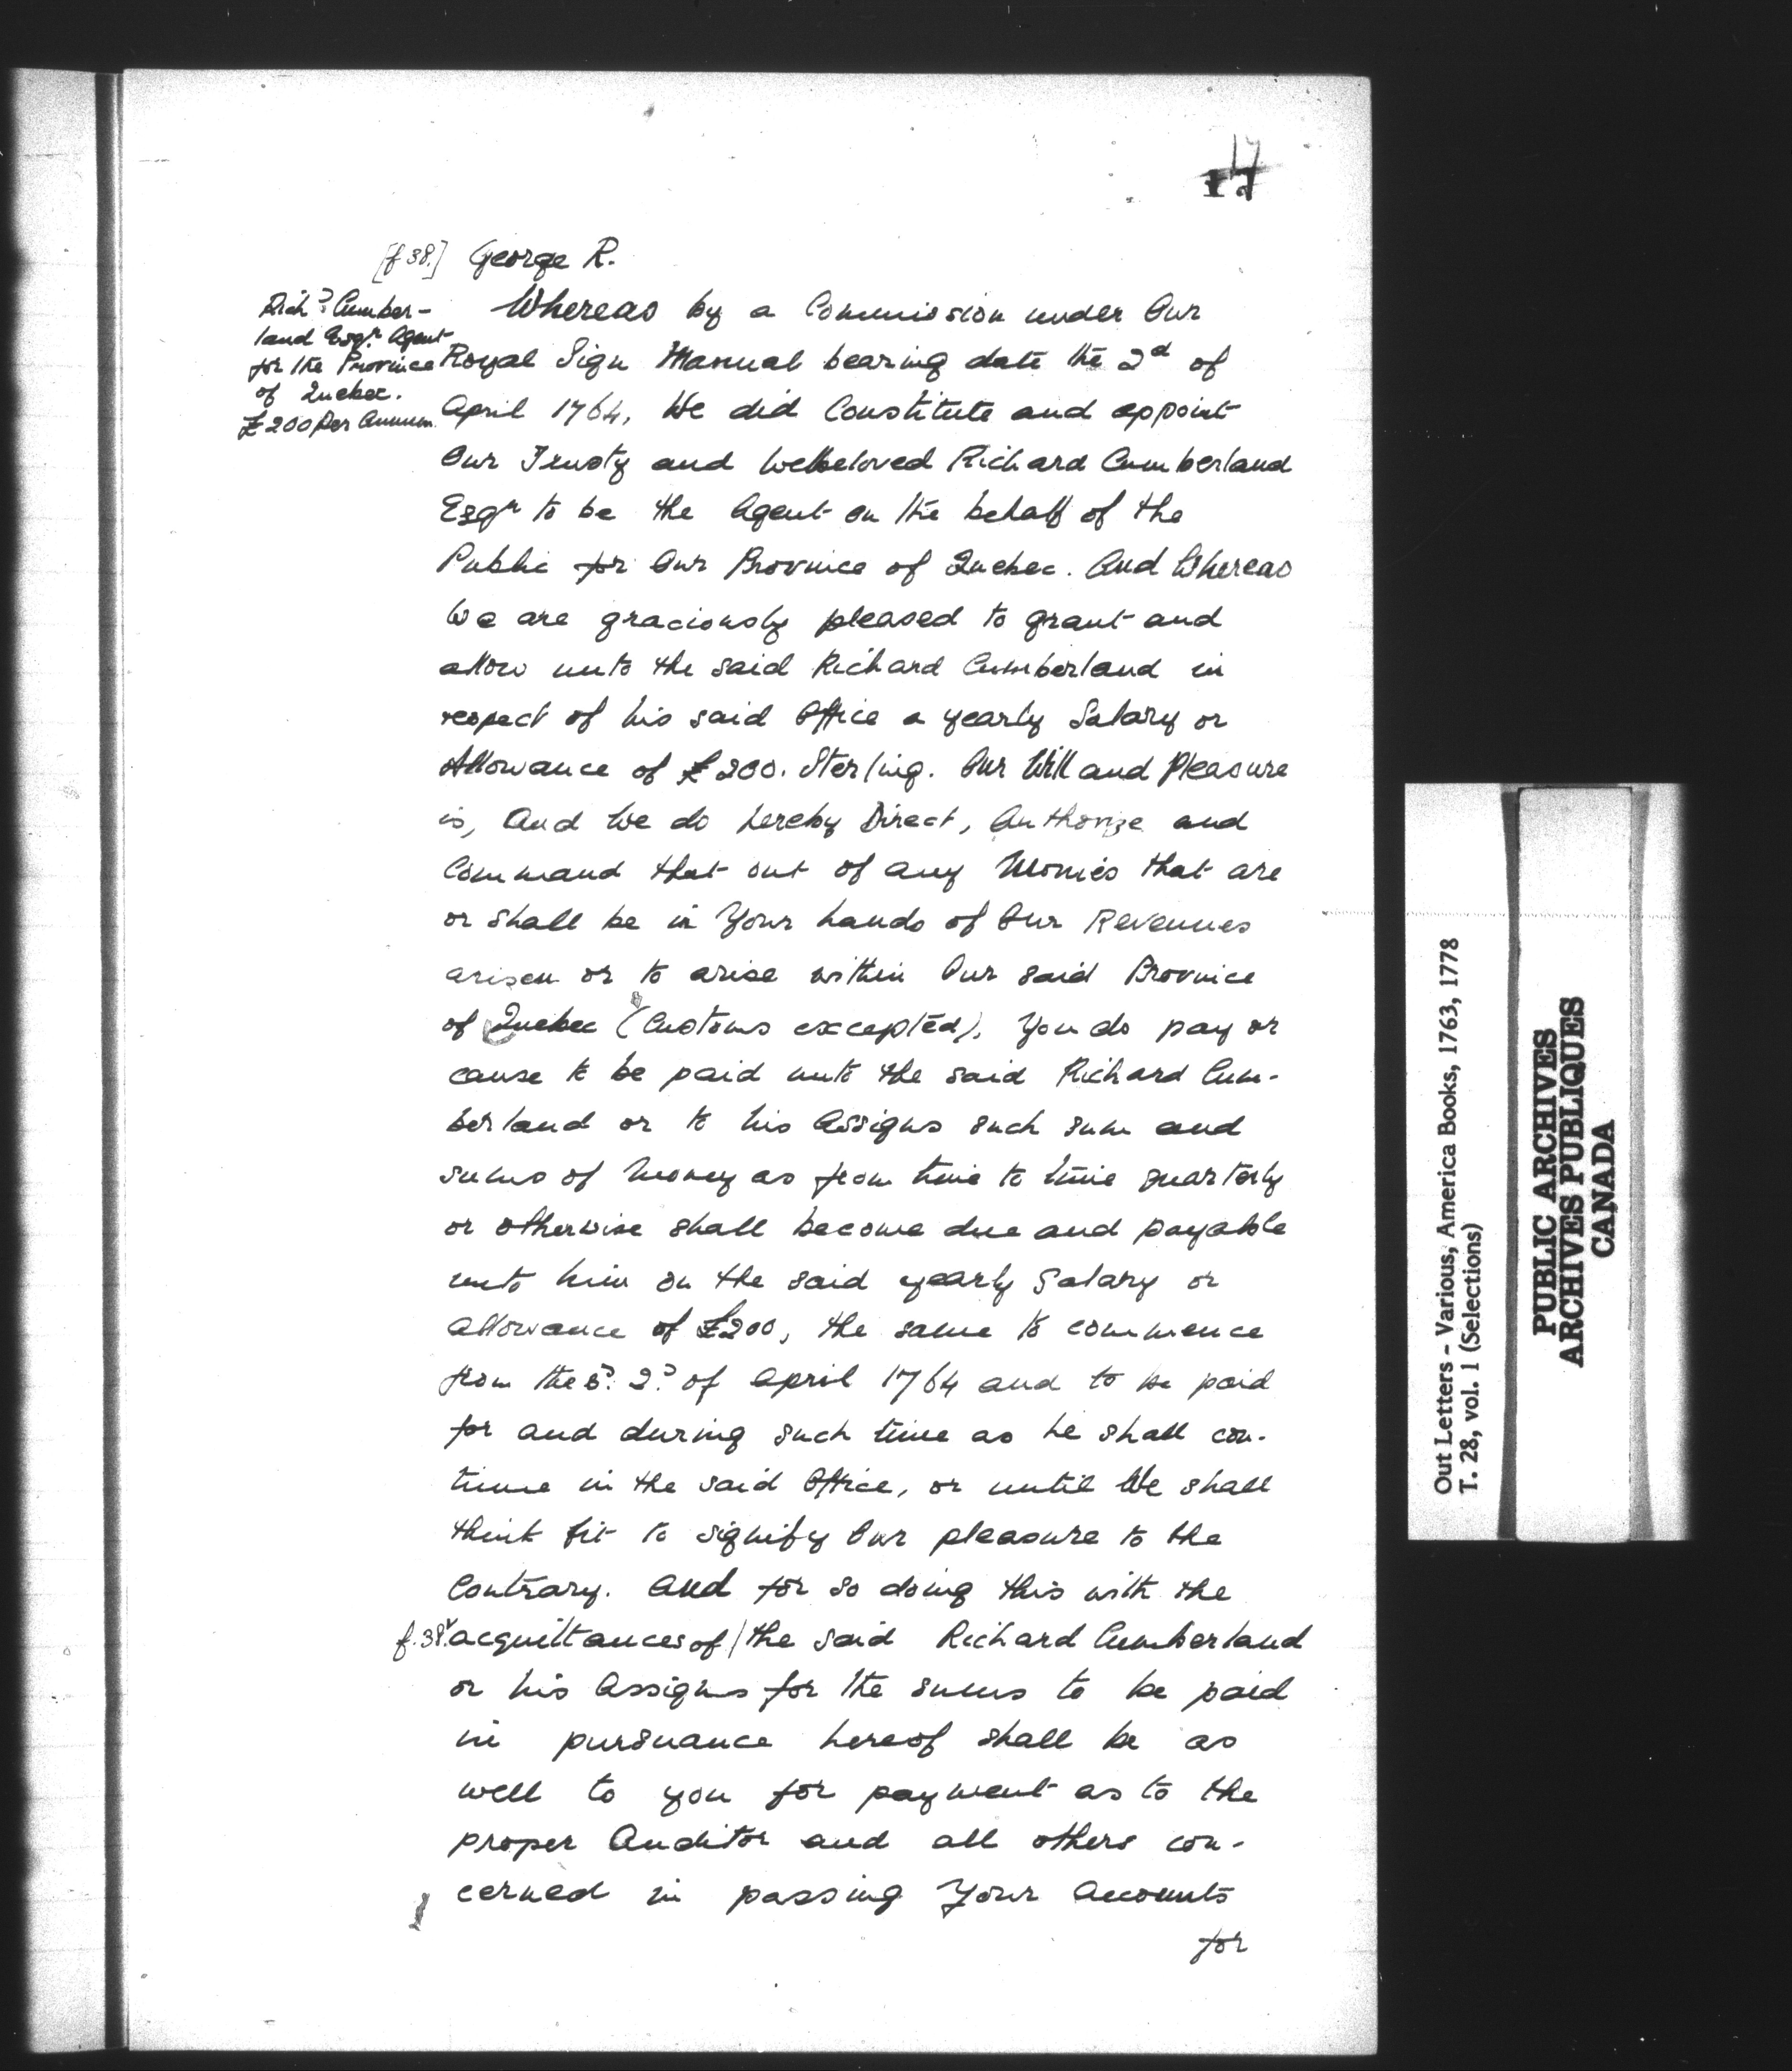 17
[f 38.] George R.
Richd Cumber-
land Esqr. Agent
for the Province
of Quebec.
£200 Per Annum.
Whereas by a Commission under Our
Royal Sign Manual bearing date the 2d of
April 1764, We did Constitute and appoint
Our Trusty and Welbeloved Richard Cumberland
Esqr to be the Agent on the behalf of the
Public for Our Province of Quebec. And Whereas
We are graciously pleased to grant and
allow unto the said Richard Cumberland in
respect of his said Office a yearly Salary or
Allowance of £200. Sterling. Our Will and Pleasure
is, And We do hereby Direct, Authorize and
Command that out of any Monies that are
or shall be in Your hands of Our Revenues
arisen or to arise within Our said Province
of Quebec (Customs excepted), You do pay or
cause to be paid unto the said Richard Cum-
berland or to his Assigns such sum and
sums of Money as from time to time quarterly
or otherwise shall become due and payable
unto him on the said yearly Salary or
allowance of £200, the same to commence
from the sd. 2d. of April 1764 and to be paid
for and during such time as he shall con-
tinue in the said Office, or until We shall
think fit to signify Our pleasure to the
Contrary. And for so doing this with the
f.38v. acquittances of / the said Richard Cumberland
or his Assigns for the sums to be paid
in pursuance hereof shall be as
well to you for payment as to the
proper Auditor and all others con-
cerned in passing Your Accounts
for
Out Letters - Various, America Books, 1763, 1778
T. 28, vol. 1 (Selections)
PUBLIC ARCHIVES
ARCHIVES PUBLIQUES
CANADA